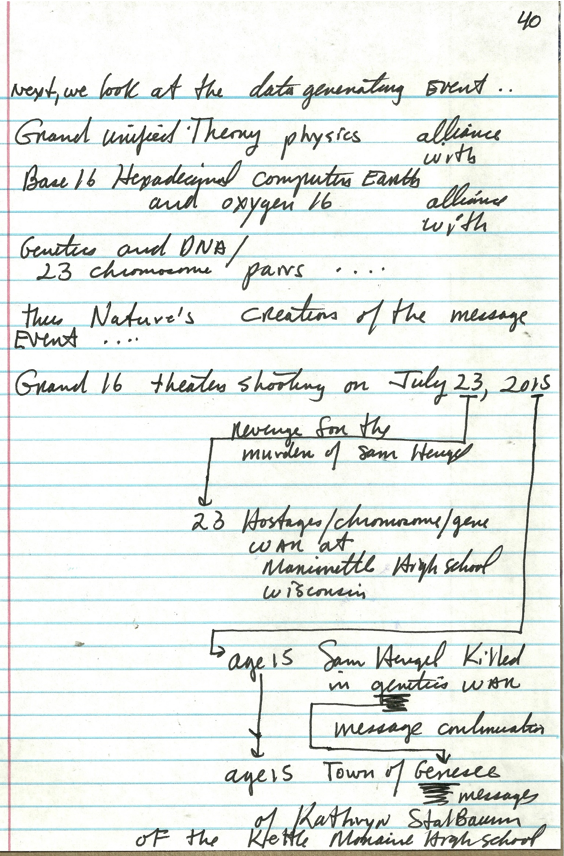 40
Next, we look at the data generating EVENT ..
Grand unified Theory physics alliance
with
Base 16 Hexadecimal computer Earth
and oxygen 16 alliance
with
Genetics and DNA/
23 chromosome pairs ....
thus Nature's creations of the message
EVENT ....
Grand 16 theaters shooting on July 23, 2015
revenge for the
murder of Sam Hengel
23 Hostages/chromosome/gene
WAR at
Marinette High school
Wisconsin
age 15 Sam Hengel Killed
in genetics WAR
message continuation
age 15 Town of Genesee
messages
of Kathryn StalBaum
of the Kettle Moraine High school